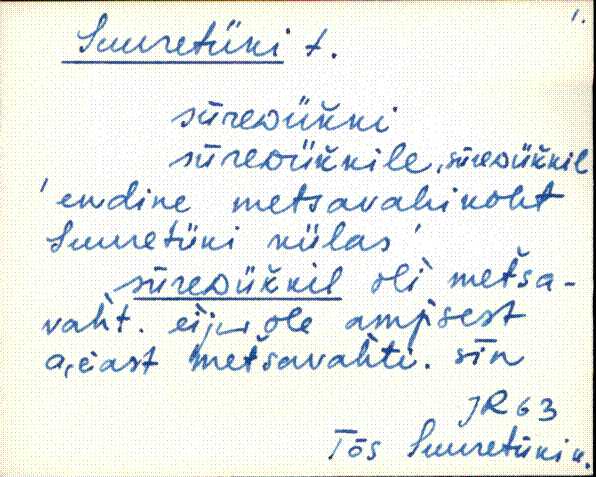 1.
Suuretüki t.
sūreᴅük̆ki
sūreᴅük̆kile, sūreᴅük̆kil
'endine metsavahikoht
Suuretüki külas'
sūreᴅük̆kil oli metsa-
vaht. ole ampsest
metsavahti. sīn
JR 63
Tõs Suuretüki k.